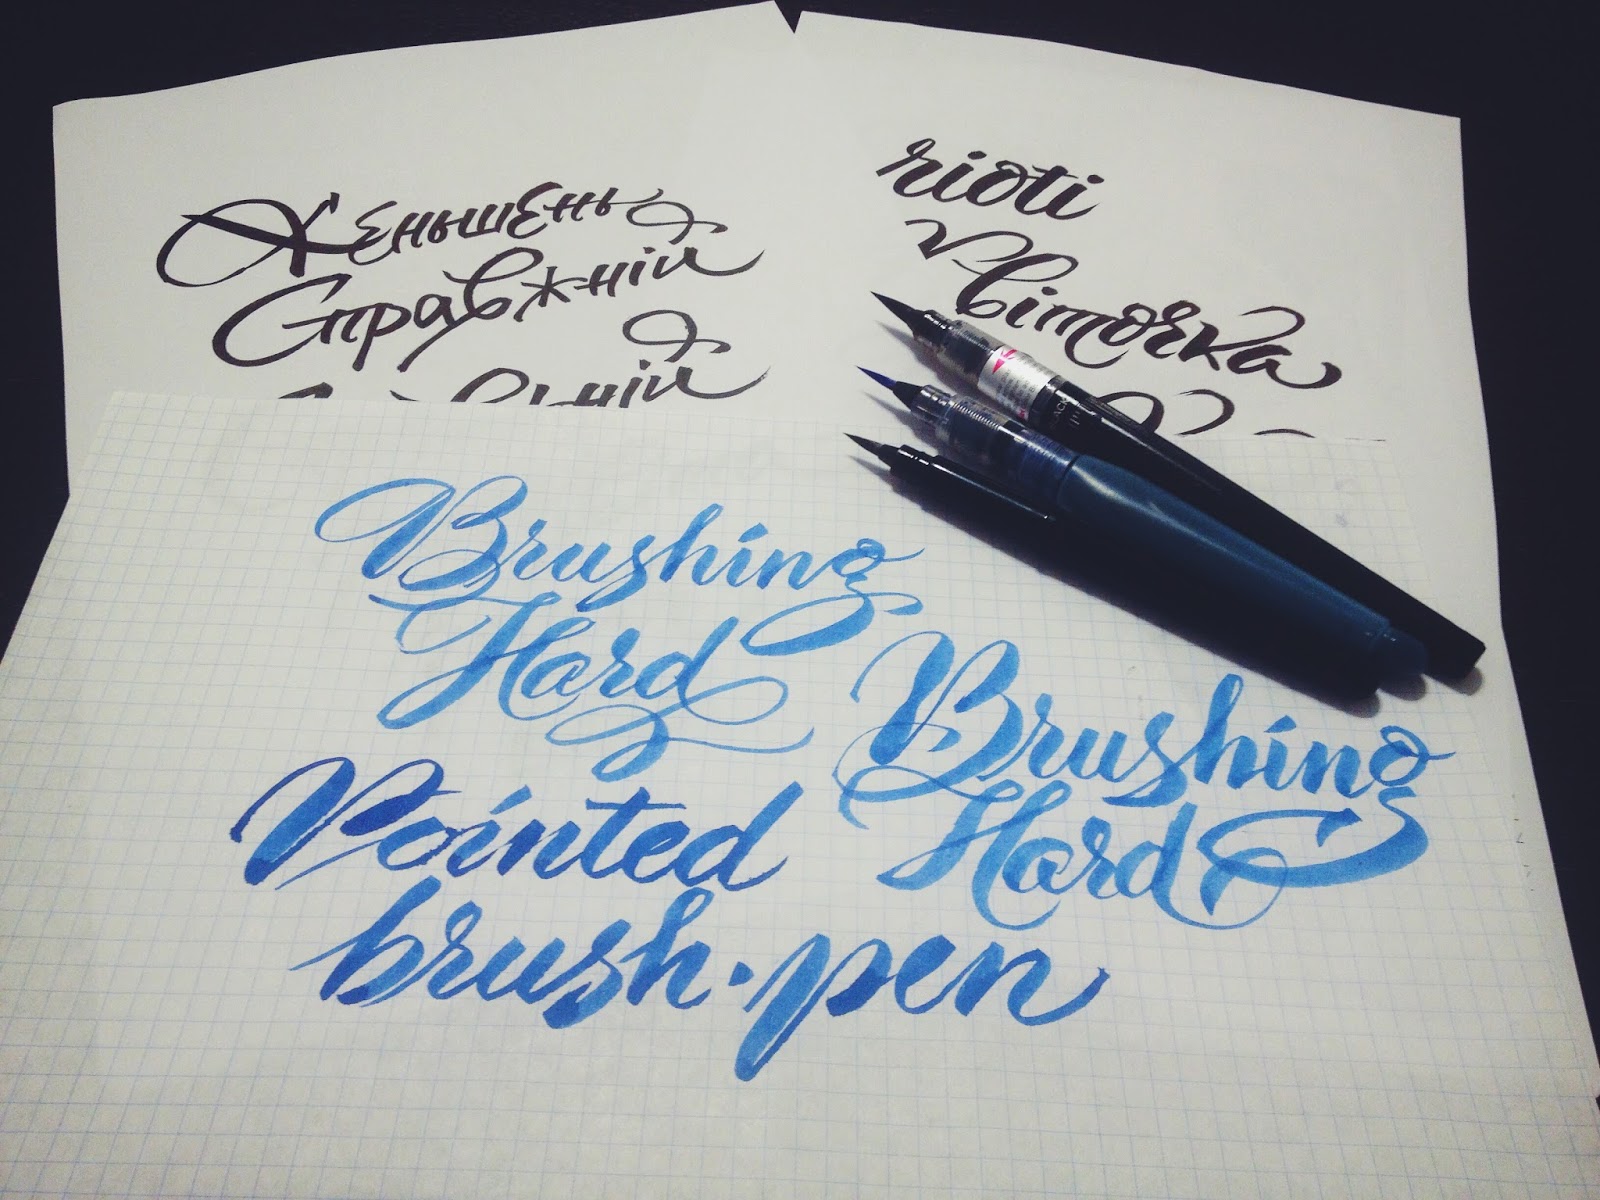 Женьшень
Справжній
Квіточка
Brushing
Hard
Brushing
Hard
Pointed
brush-pen